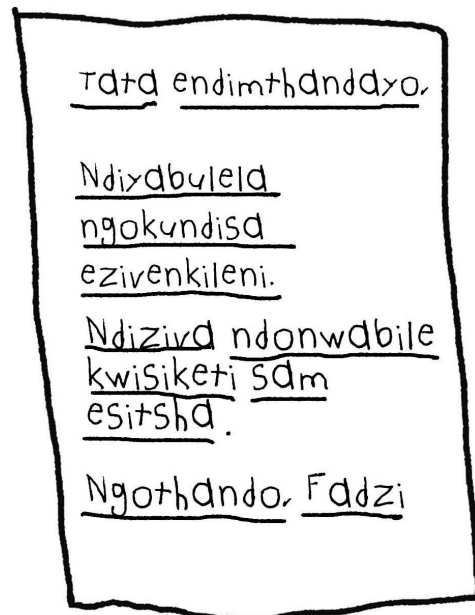 Tata endimthandayo,
Ndiyabulela
ngokundisa
ezivenkileni.
Ndiziva ndonwabile
kwisiketi sam
esitsha.
Ngothando, Fadzi